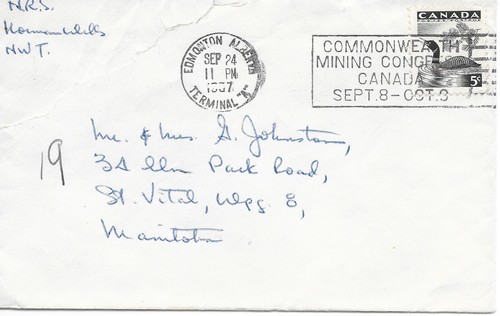 N.R.S.
Norman Wells
NWT.
EDMONTON ALBERTA
SEP 24
11 PM
1957
TERMINAL "A"
CANADA
5¢
COMMONWEALTH
MINING CONGRE
CANADA
SEPT.8-OCT.9
19
Mr. & Mrs. G. Johnston,
34 Elm Park Road,
St. Vital, Wpg. 8,
Manitoba